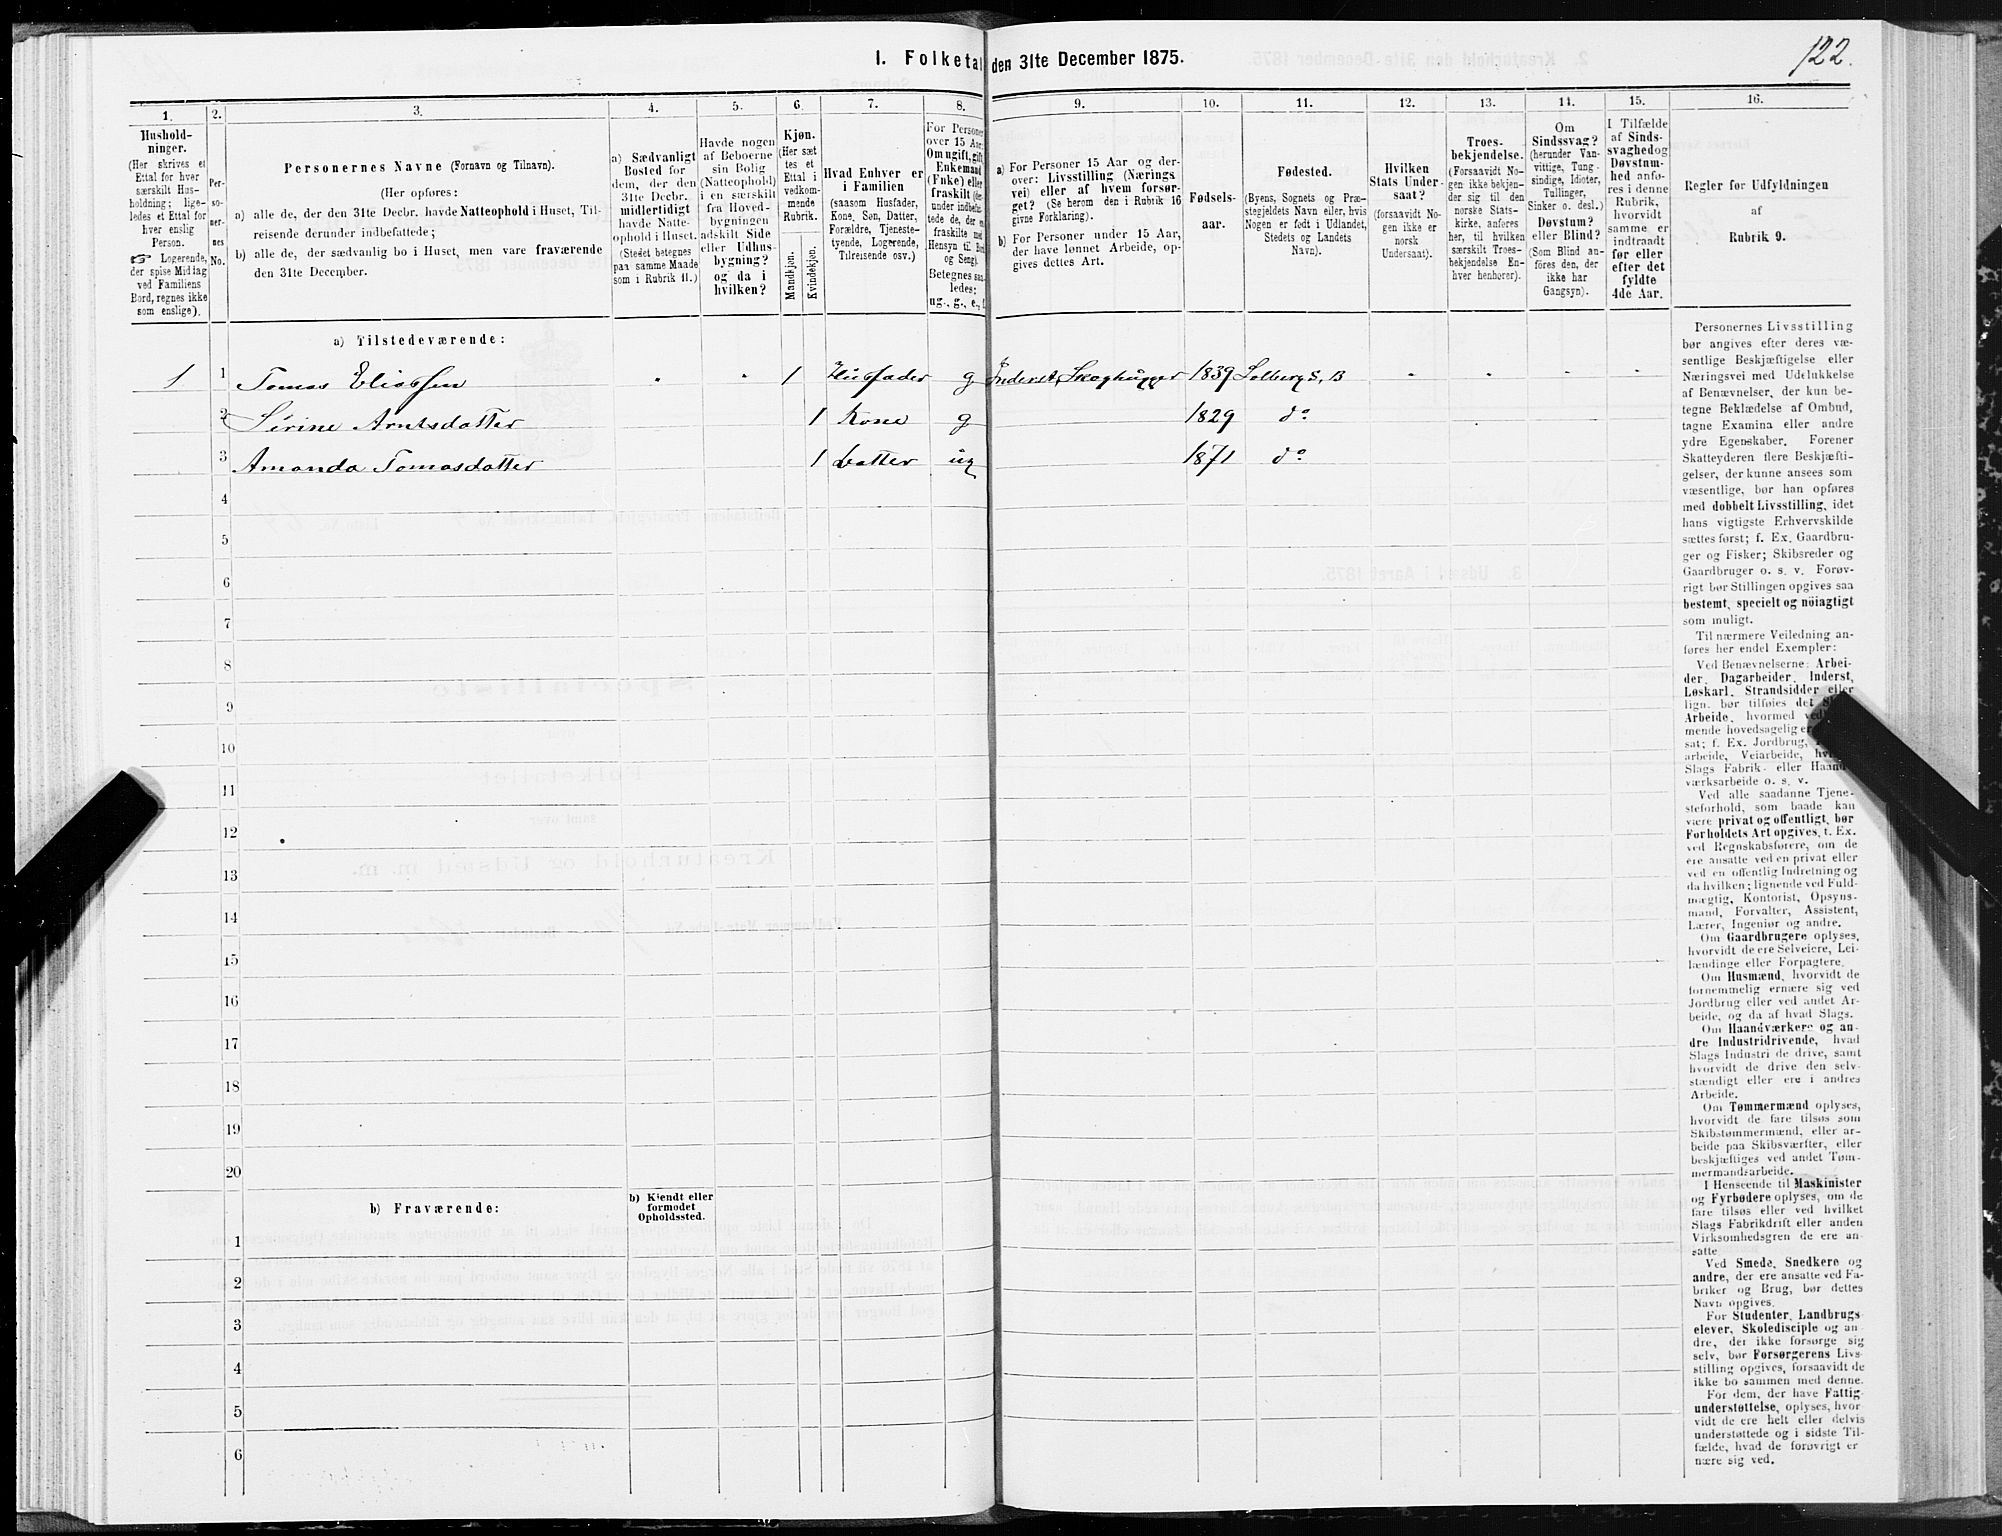 122.
I. Folketal den 31te December 1875.
1. 2. 3. 4. 5. 6. 7. 8. 9. 10. 11. 12. 13. 14. 15. 16.
Hushold-
ninger.
(Her skrives et
Ettal for hver
særskilt Hus-
holdning; lige-
ledes et Ettal for
hver enslig
Person.
☞ Logerende,
der spise Middag
ved Familiens
Bord, regnes ikke
som enslige).
Per-
so-
ner-
nes
No.
Personernes Navne (Fornavn og Tilnavn).
(Her opføres:
a) alle de, der den 31te Decbr. havde Natteophold i Huset, Til-
reisende derunder indbefattede;
b) alle de, der sædvanlig bo i Huset, men vare fraværende
den 31te December.
a) Sædvanligt
Bosted for
dem, der den
31te Decbr.
midlertidigt
havde Natte-
ophold i Huset.
(Stedet betegnes
paa samme Maade
som i Rubrik 11.)
Havde nogen
af Beboerne
sin Bolig
(Natteophold)
i en særskilt
fra Hoved-
bygningen
adskilt Side
eller Udhus-
bygning?
og da i
hvilken?
Kjøn.
(Her sæt
tes et
Ettal i
vedkom-
mende
Rubrik.
Mandkjøn.
Kvindekjøn.
Hvad Enhver er
i Familien
(saasom Husfader,
Kone, Søn, Datter,
Forældre, Tjeneste-
tyende, Logerende,
Tilreisende osv.)
For Personer
over 15 Aar:
Om ugift, gift,
Enkemand
(Enke) eller
fraskilt
Betegnes saa-
ledes:
ug., g., e., f.
a) For Personer 15 Aar og der-
over: Livsstilling (Nærings
vei) eller af hvem forsør-
get? (Se herom den i Rubrik 16
givne Forklaring).
b) For Personer under 15 Aar,
der have lønnet Arbeide, op-
gives dettes Art.
Fødsels-
aar.
Fødested.
(Byens, Sognets og Præ-
stegjeldets Navn eller, hvis
Nogen er født i Udlandet,
Stedets og Landets
Navn).
Hvilken
Stats Under-
saat?
(forsaavidt No-
gen ikke er
norsk
Undersaat).
Troes-
bekjendelse.
(Forsaavidt No-
gen ikke bekjen-
der sig til den
norske Stats-
kirke, anføres
her, til hvilken
særskilt Troes-
bekjendelse En-
hver henhører).
Om
Sindssvag?
(herunder Van-
vittige, Tung
sindige, Idioter,
Tullinger,
Sinker o. desl.)
Døvstum?
eller Blind?
(Som Blind an-
føres den, der
ikke har
Gangsyn).
I Tilfælde
af Sinds-
svaghed og
Døvstum-
hed anfø-
res i denne
Rubrik,
hvorvidt
samme er
indtraadt
før eller
efter det
fyldte
4de Aar.
Regler for Udfyldningen
af
Rubrik 9.
a) Tilstedeværende:
1 1 Tomas Eliassen " " 1 Husfader g Inderst, Skoghugger 1839 Solberg S, B " " " "
2 Sirine Arntsdatter 1 Kone g 1829 do
3 Amanda Tomasdatter 1 Datter ug 1871 do
4
5
6
7
8
9
10
11
12
13
14
15
16
17
18
19
20
b) Fraværende:
b) Kjendt eller
formodet
Opholdssted.
1
2
3
4
5
6
Personernes Livsstilling
bør angives efter deres væ-
sentlige Beskjæftigelse eller
Næringsvei med Udelukkelse
af Benævnelser, der kun be-
tegne Beklædelse af Ombud,
tagne Examina eller andre
ydre Egenskaber. Forener
Skatteyderen flere Beskjæfti-
gelser, der kunne ansees som
væsentlige, bør han opføres
med dobbelt Livsstilling, idet
hans vigtigste Erhvervskilde
sættes først; f. Ex. Gaardbru-
ger og Fisker; Skibsreder og
Gaardbruger o. s. v. Forøv-
rigt bør Stillingen opgives saa
bestemt, specielt og nöiagtigt
som muligt.
Til nærmere Veiledning an-
føres her endel Exempler:
Ved Benævnelserne: Arbei-
der, Dagarbeider, Inderst,
Løskarl, Strandsidder eller
lign. bør tilføies det
Arbeide, hvormed
mende hovedsagelig er
sat; f. Ex. Jordbrug,
arbeide, Veiarbeide,
Slags Fabrik- eller Haand-
værksarbeide o. s. v.
Ved alle saadanne Tjene-
steforhold, som baade kan
være privat og offentligt, bør
Forholdets Art opgives, f. Ex.
ved Regnskabsførere, om de
ere ansatte ved en privat eller
ved en offentlig Indretning og
da hvilken; lignende ved Fuld-
mægtig, Kontorist, Opsyns-
mand, Forvalter, Assistent,
Lærer, Ingeniør og andre.
Om Gaardbrugere oplyses,
hvorvidt de ere Selveiere, Lei-
lændinge eller Forpagtere.
Om Husmænd, hvorvidt de
fornemmelig ernære sig ved
Jordbrug eller ved andet Ar-
beide, og da af hvad Slags.
Om Haandværkere og an-
dre Industridrivende, hvad
Slags Industri de drive, samt
hvorvidt de drive den selv-
stændigt eller ere i andres
Arbeide.
Om Tømmermænd oplyses,
hvorvidt de fare tilsøs som
Skibstømmermænd, eller ar-
beide paa Skibsværfter, eller
beskjæftiges ved andet Tøm-
mermandsarbeide.
I Henseende til Maskinister
og Fyrbødere oplyses, om de
fare tilsøs eller ved hvilket
Slags Fabrikdrift eller anden
Virksomhedsgren de ere an-
satte
Ved Smede, Snedkere og
andre, der ere ansatte ved Fa-
briker og Brug, bør dettes
Navn opgives.
For Studenter, Landbrugs
elever, Skoledisciple og an-
dre, der ikke forsørge sig
selv, bør Forsørgerens Livs-
stilling opgives, forsaavidt de
ikke bo sammen med denne.
For dem, der have Fattig-
understøttelse, oplyses, hvor-
vidt de ere helt eller delvis
understøttede og i sidste Til-
fælde, hvad de forøvrigt er
nære sig ved.